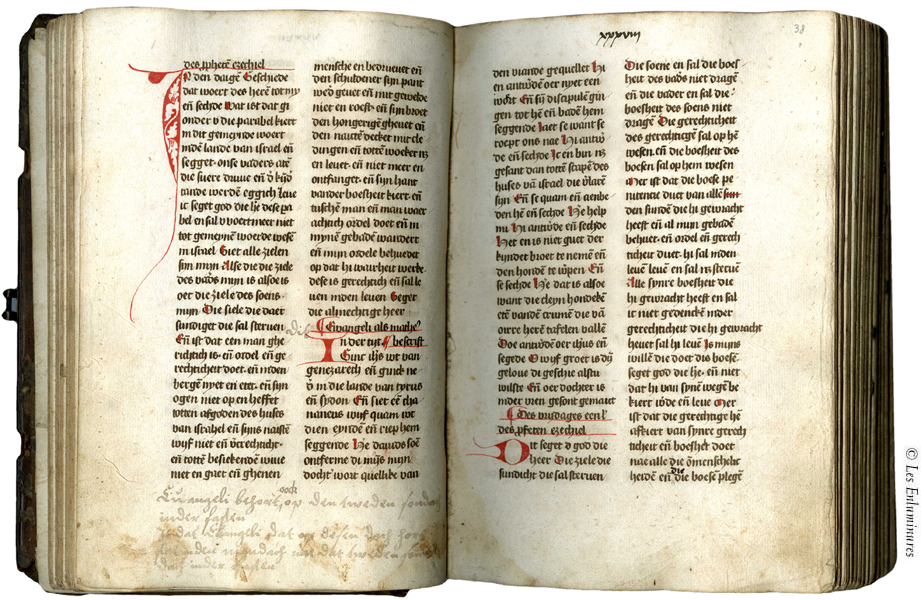 des ꝓphetē ezechiel
In den dagē Geschiede
dat woert des herē tot my
en̄ sechde Wat ist dat gi
onder v die parabel kiert
in dit gemeynde woert
indē lande van israel en̄
segget onse vaders atē
die suere druue en̄ d̕ kijd̕
tande werdē eggich Leue
ic seget god die h̕e dese pa
bel en sal v voert meer niet
tot gemeynē woerde wesē
in israel Siet alle zielen
sijn mijn Alse die ziele
des vad̕s mijn is alsoe is
oec die ziele des soens
mijn Die siele die daer
sundiget die sal steruen
En̄ ist dat een man ghe
rechtich is en̄ ordel en̄ ge
rechticheit doet en̄ inden
bergē nyet en etet en̄ sijn
ogen niet op en heffet
totten afgoden des huses
van israhel en̄ sijns naistē
wijf niet en v̕crechticht
en̄ tottē besiekendē wiue
niet en gaet en̄ ghenen
mensche en bedrueuet en̄
den schuldener sijn pant
wed̕ geuet en̄ mit gewelde
niet en roeft en̄ sijn broet
den hongerigē gheuet en̄
den nactē decket mit cle
dingen en̄ tottē woeker nz
en leuet en̄ niet meer en
ontfanget en̄ sijn hant
vander boesheit kiert en̄
tuschē man en̄ man waer
achtich ordel doet en̄ in
mynē gebadē wandert
en̄ mijn ordele behuedet
op dat hi waerheit werke
dese is gerechtich en̄ sal le
uen inden leuen Seget
die almechtige heer
Ewangeli als mathe̕
In der tijt bescrijft
Ginc ih̄s wt van
genezareth en̄ ginck ne
d̕ in die lande van tyrus
en̄ sydon En̄ siet eē cha
naneus wijf quam wt
dien eyndē en̄ riep hem
seggende He dauids soē
ontferme di mijs mijn
docht̕ wort quelike van
Ewangeli behoert oock op den tweden sondach
inder fasten
38
den viande gequellet Hi
en antwōde oer nyet een
wōrt En̄ sijn discipulē gin
gen tot hē en̄ badē hem
seggende Laet se want se
roept ons nae Hi antwō
de en̄ sechde Ic en bin nz
gesant dan tottē scapē des
huses vā israel die v̕larē
sijn En̄ se quam en̄ aenbe
den hē en̄ sechde He help
mi Hi antwōde en̄ sechde
Het en is niet guet der
kijnder broet te nemē en̄
den hondē te w̕pen En̄
se sechde He dat is alsoe
want die cleyn hondekē
etē vandē crumē die vā
oerre herē tafelen vallē
Doe antwōde oer ih̄us en̄
segede O wijf groet is dij
geloue di geschie alstu
wilste En̄ oer dochter is
inder vren gesont gemaect
Des vridages een l̕
des ꝓfeten ezechiel
Dit seget d god die
heer Die ziele die
sundicht die sal sterue̅
Die soene en sal die boes
heit des vad̕s niet dragē
en̄ die vader en sal die
boesheit des soens niet
dragē Die gerechticheit
des gerechtigē sal op hē
wesen en̄ die boesheit des
boesen sal op hem wesen
Mer ist dat die boese pe
nitencie duet van allē sijn
den sundē die hi gewracht
heeft en̄ al mijn gebadē
behuet en̄ ordel en̄ gerech
ticheit duet hi sal inden
leuē leuē en̄ sal nz steruē
Alle synre boesheit die
hi gewracht heeft en sal
ic niet gedenckē inder
gerechticheit die hi gewracht
heuet sal hi leuē Is mijns
willē die doet dis boesē
seget god die h̕e en̄ niet
dat hi van synē wegē be
kiert w̕de en̄ leue Mer
ist dat die gerechtige hē
afkiert van synre gerech
ticheit en̄ boesheit doet
nae alle die ōmenscheit
die
heidē en̄ die boese plegē
© Les Enluminures